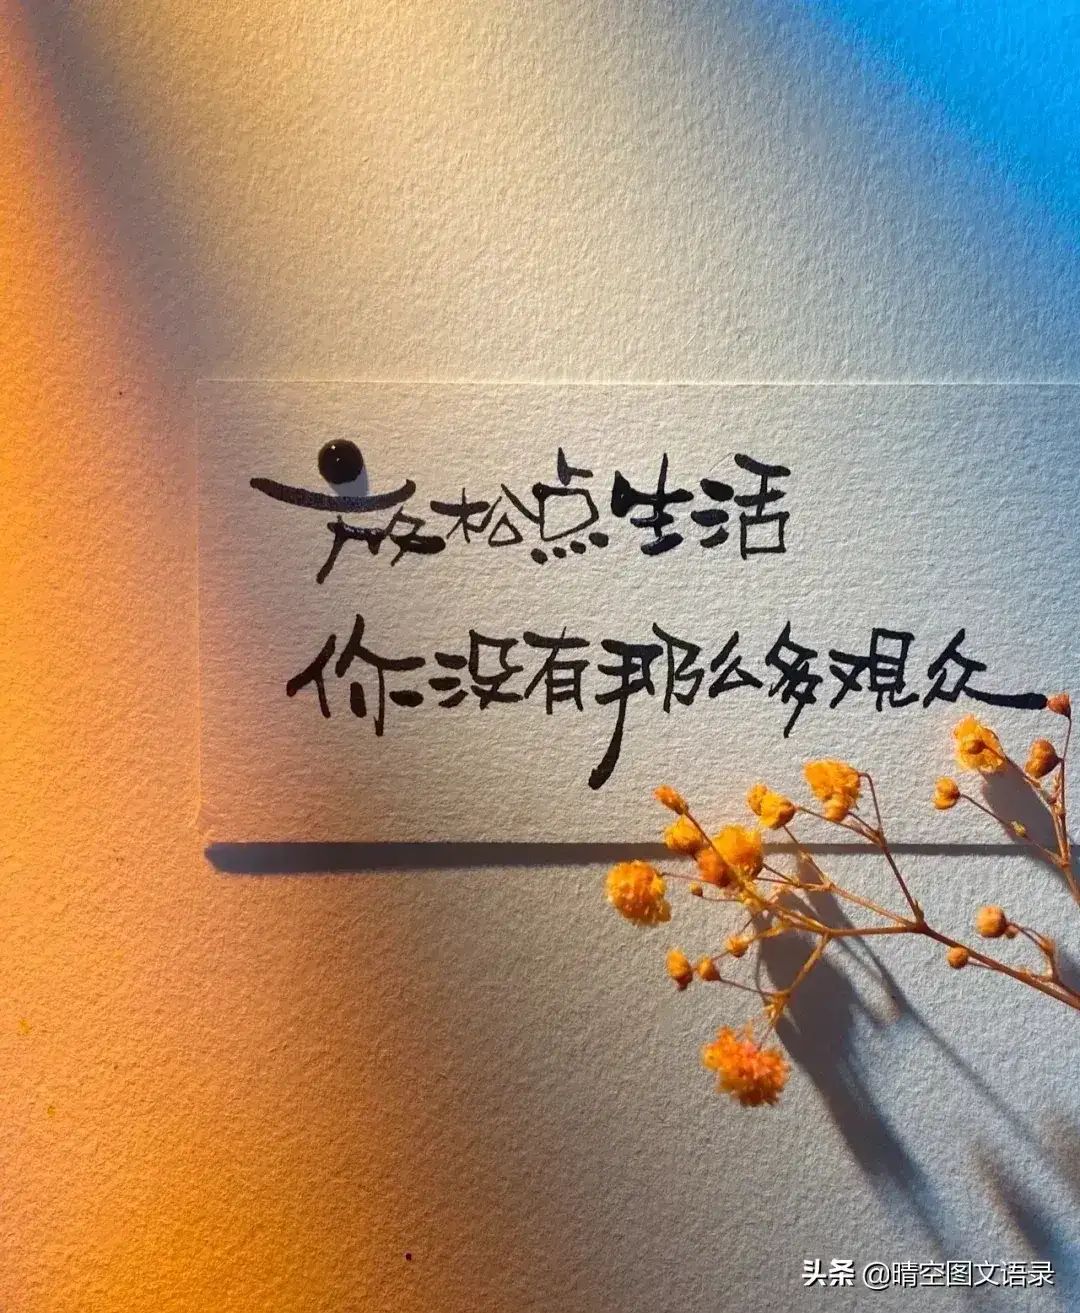 放松点生活
你没有那么多观众
头条 @晴空图文语录